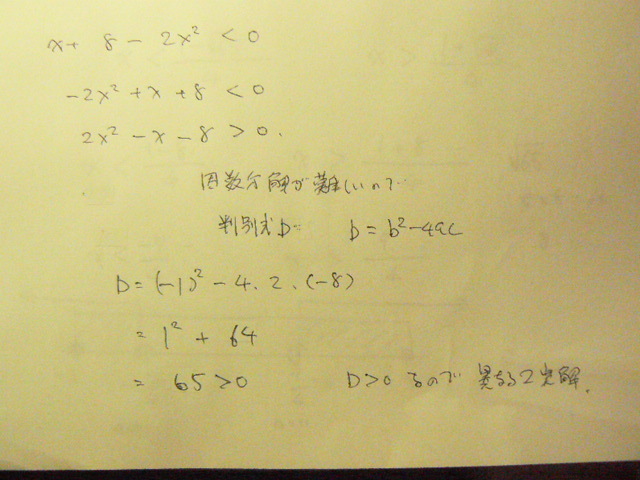 x + 8 - 2x² < 0
-2x² + x + 8 < 0
2x² - x - 8 > 0.
因数分解が難しいので
判別式D D = b² - 4ac
D = (-1)² - 4・2・(-8)
= 1² + 64
= 65 > 0 D > 0 なので 異なる2実解.